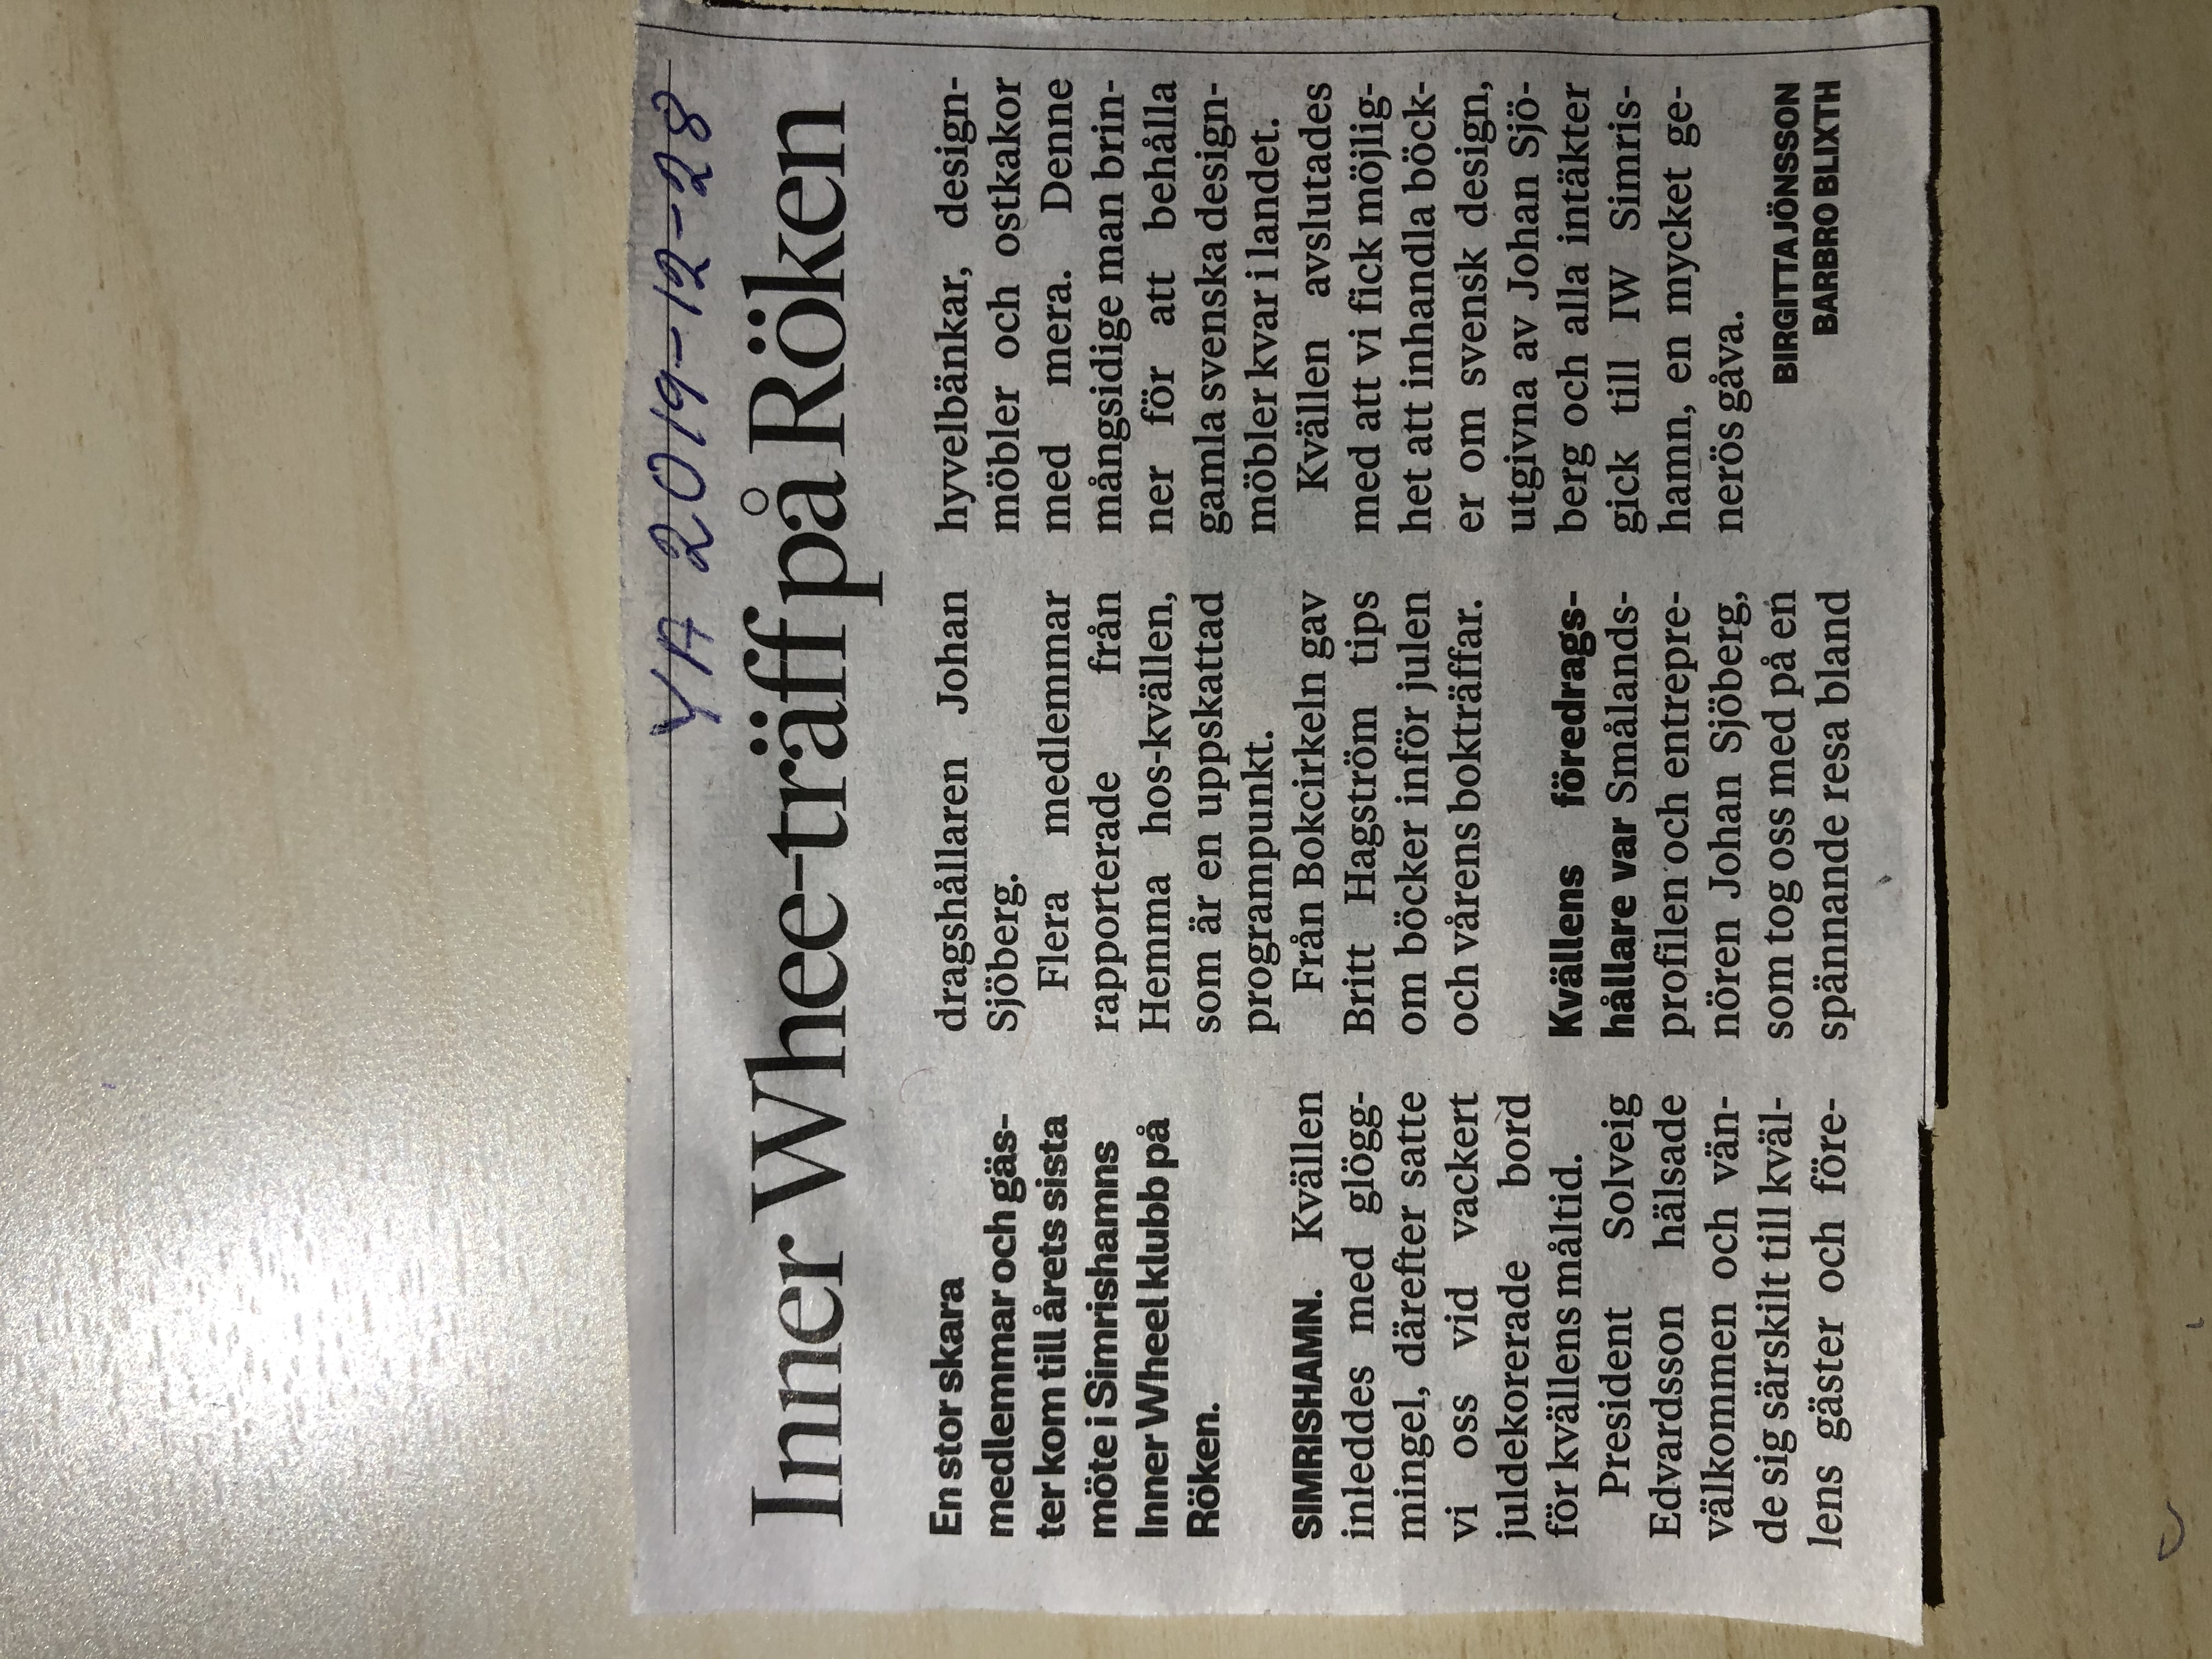 YA 2019-12-28
Inner Whee-träff på Röken
En stor skara
medlemmar och gäs-
ter kom till årets sista
möte i Simrishamns
Inner Wheel klubb på
Röken.
SIMRISHAMN. Kvällen
inleddes med glögg-
mingel, därefter satte
vi oss vid vackert
juldekorerade bord
för kvällens måltid.
President Solveig
Edvardsson hälsade
välkommen och vän-
de sig särskilt till kväl-
lens gäster och före-
dragshållaren Johan
Sjöberg.
Flera medlemmar
rapporterade från
Hemma hos-kvällen,
som är en uppskattad
programpunkt.
Från Bokcirkeln gav
Britt Hagström tips
om böcker inför julen
och vårens bokträffar.
Kvällens föredrags-
hållare var Smålands-
profilen och entrepre-
nören Johan Sjöberg,
som tog oss med på en
spännande resa bland
hyvelbänkar, design-
möbler och ostkakor
med mera. Denne
mångsidige man brin-
ner för att behålla
gamla svenska design-
möbler kvar i landet.
Kvällen avslutades
med att vi fick möjlig-
het att inhandla böck-
er om svensk design,
utgivna av Johan Sjö-
berg och alla intäkter
gick till IW Simris-
hamn, en mycket ge-
nerös gåva.
BIRGITTA JÖNSSON
BARBRO BLIXTH